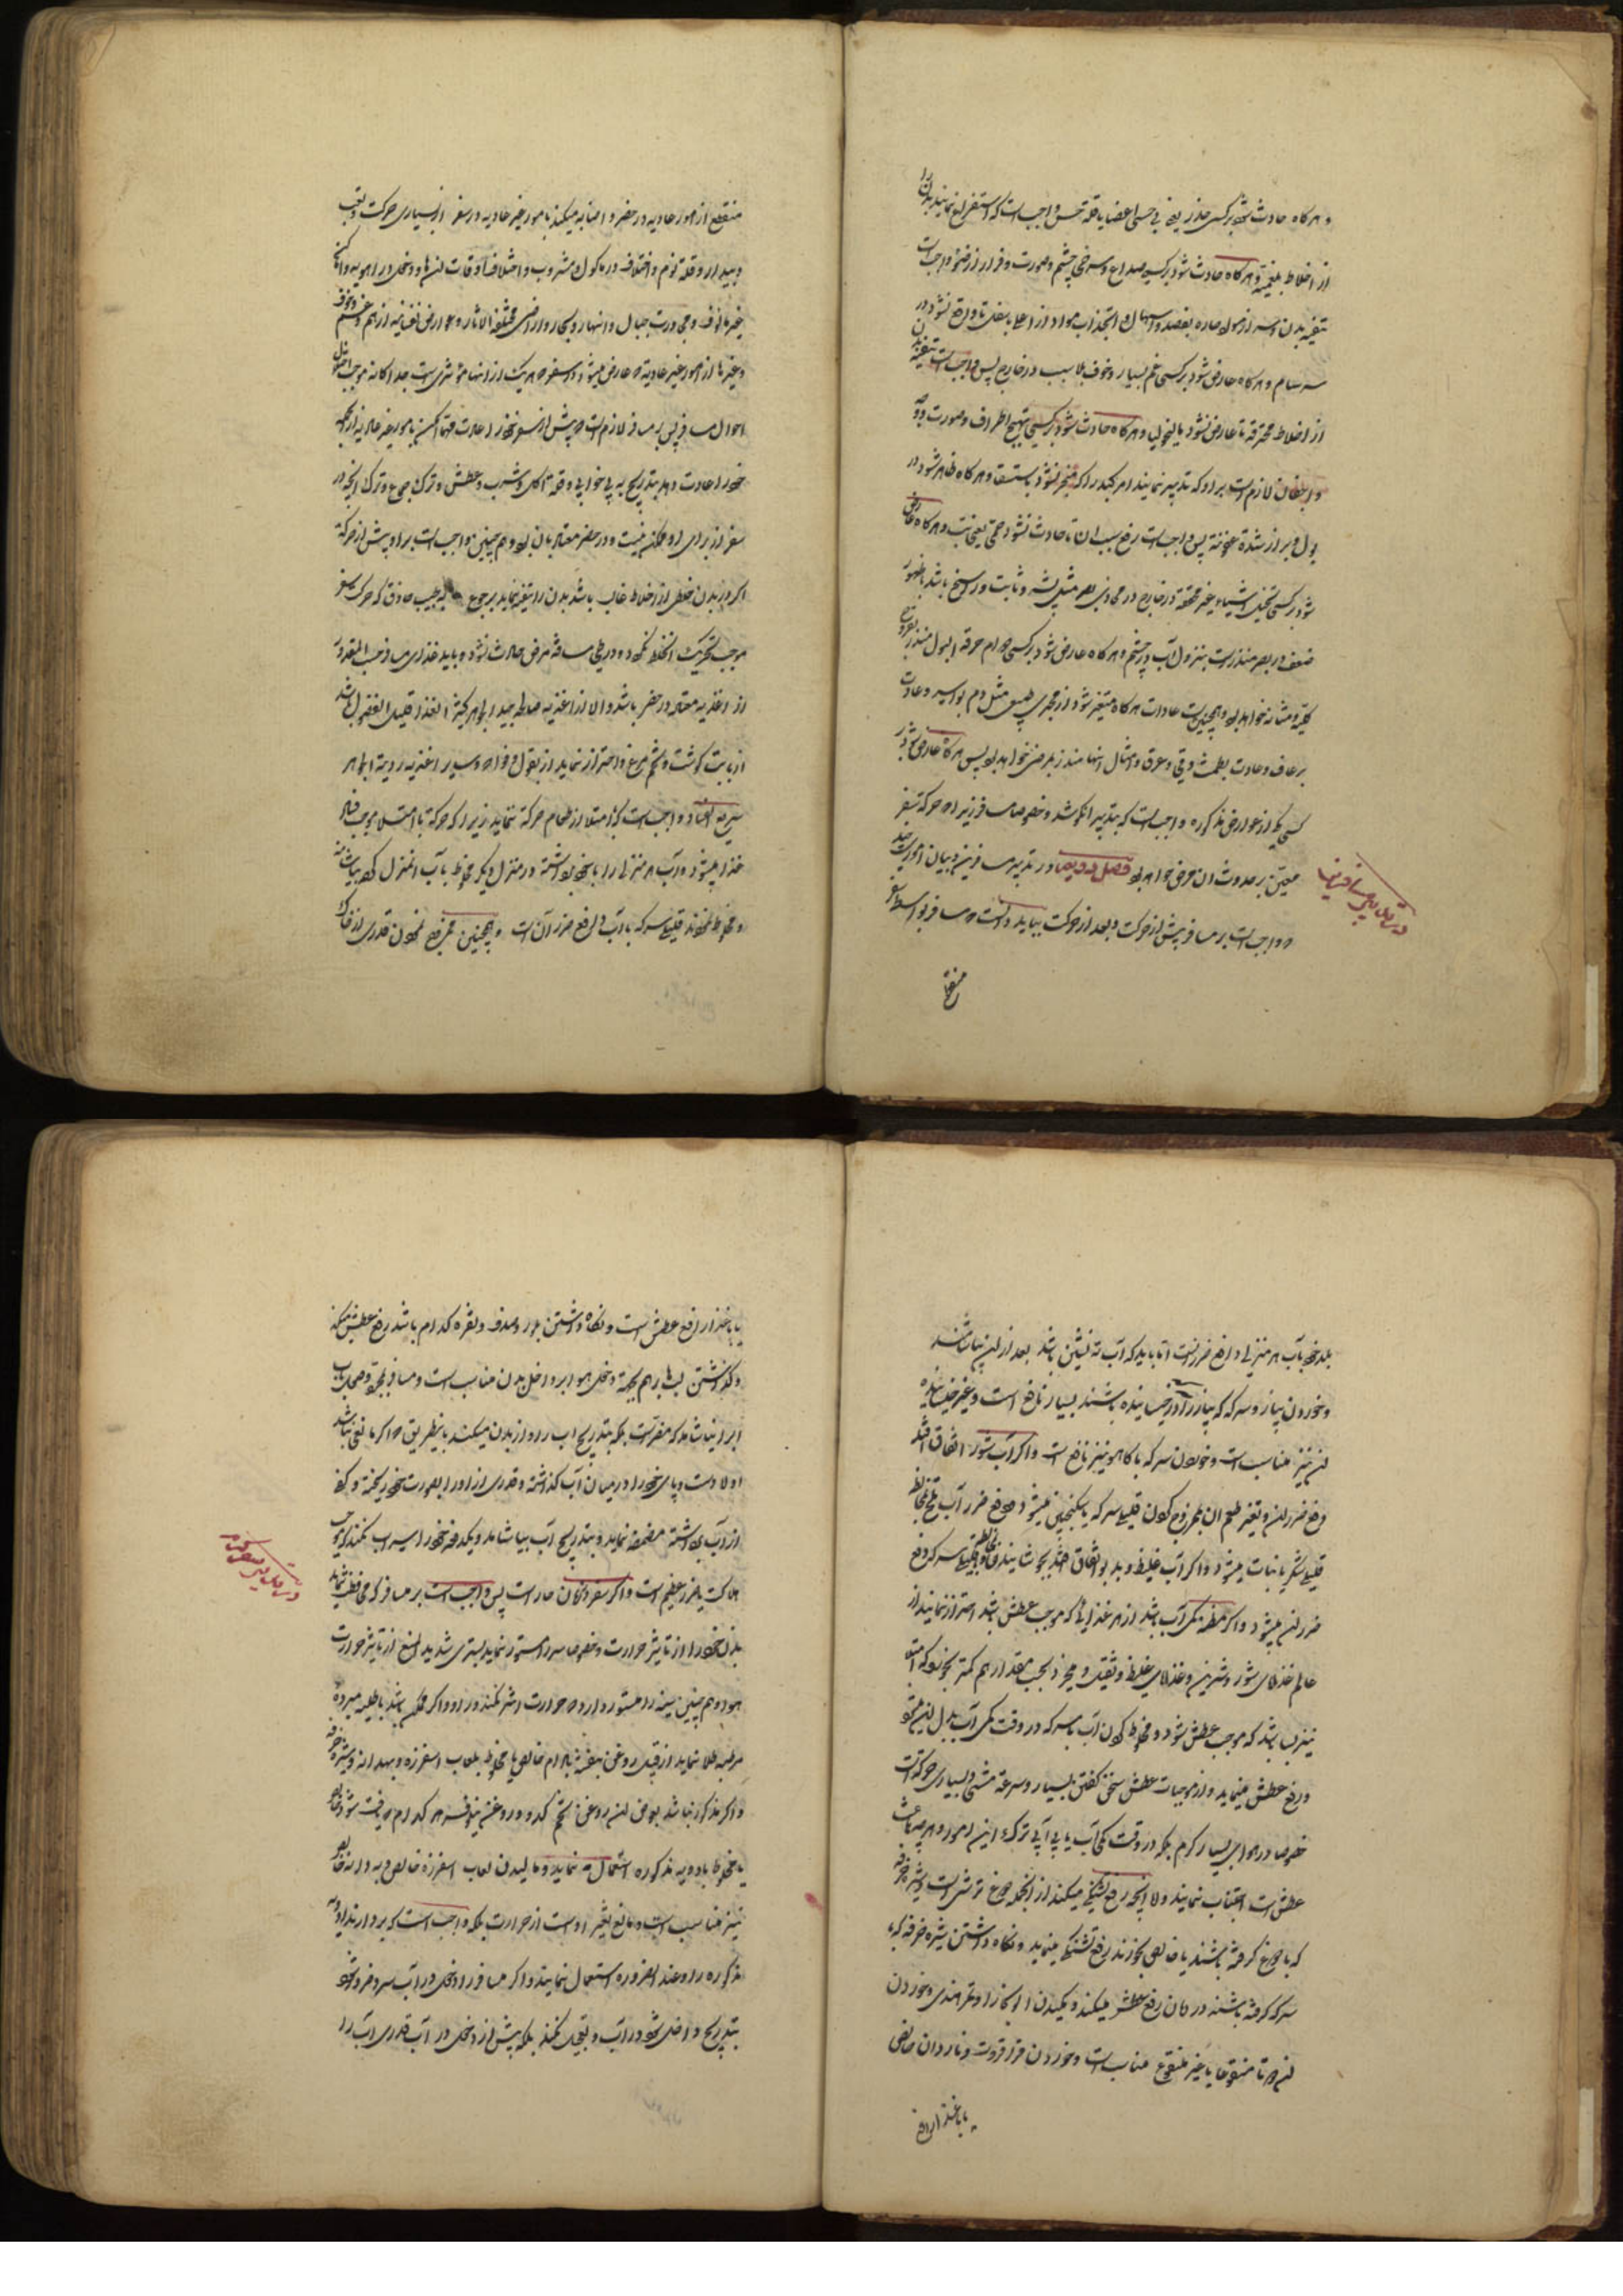 و هرگاه حادث شود بر کسی خدر یعنی بی حسی اعضا یا قلة حس واجب است که استفراغ نمایند بدن را
از اخلاط بلغمیه و هرگاه حادث شود بر کسی صداع و سرخی چشم و صورت و فرار از ضوء واجب است
تنقیه بدن و سر از مواد حاره بفصد و اسهال و انجذاب مواد از اعلا باسفل تا واقع نشود در
سرسام و هرگاه عارض شود بر کسی غم بسیار و خوف بلا سبب در خارج پس واجب است تنقیه بدن
از اخلاط محترقه تا عارض نشود مالیخولیا و هرگاه حادث شود بر کسی تهیج اطراف و صورت
لازم است بر او که تدبیر نمایند امر کبد را که منجر نشود باستسقا و هرگاه ظاهر شود در
بول و براز شدة عفونة پس واجب است رفع سبب آن تا حادث نشود حمی یعنی تب و هرگاه عارض
شود بر کسی تخیل اشیاء غیر محققة در خارج در محاذی بصر مثل پشه و ثابت و راسخ باشد با ظهور
ضعف در بصر منذر است بنزول آب در چشم و هرگاه عارض شود بر کسی دوام حرقة البول منذر بقروح
کلیه و مثانه خواهد بود و همچنین است عادات هرگاه متغیر شود از مجری طبیعی مثل دم بواسیر و عادت
برعاف و عادت بطمث و قی و عرق و امثال آنها منذر بمرضی خواهد بود پس هرگاه عارض شود بر
کسی یکی از عوارض مذکوره واجب است که بتدبیر آن کوشد و خصوصا مسافر زیرا که حرکة سفر
معین بر حدوث آن مرض خواهد بود فصل دویم در تدبیر مسافرین و بیان اموریست چند
که واجب است بر مسافر پیش از حرکت و بعد از حرکت بباید دانست که مسافر بواسطه سفر
در تدابیر مسافرین
منقطع
منقطع از امور عادیه در حضر و اصابه میکند بامور غیر عادیه در سفر از بسیاری حرکت و تعب
و بیداری و قلة نوم و اختلاف در ماکول و مشروب و اختلاف اوقات آنها و دخول در اهویه و اماکن
غیر مالوف و مجاورت جبال و انهار و بحار و اراضی مختلفة الاثار و عوارض نفسانیه از هم و غم و خوف
و غیرها از امور غیر عادیه که عارض میشود در سفر که هر یک از انها مؤثریست جداگانه موجب اختلال
احوال مسافر پس بر مسافر لازم است که پیش از سفر خود را عادت دهد مهما امکن بامور غیر عادیه از آنجمله
خود را عادت دهد بتدریج به بی خوابی و قلة اکل و شرب و عطش و ترک جماع و ترک انچه در
سفر از برای او ممکن نیست و در حضر معتاد بان بود و همچنین واجب است بر او پیش از حرکة
اگر در بدن خلطی از اخلاط غالب باشد بدن را تنقیه نماید برجوع به طبیب حاذق که حرکت سفر
موجب تحریک انخلط نگردد و در طی مسافة مرض حادث نشود و باید غذای مسافر حسب المقدرة
از اغذیه معتاد در حضر باشد و الا از اغذیه صالحه جید الجوهر کثیر الغذا قلیل الفضول باشد
از بابت گوشت و تخم مرغ و احتراز نماید از بقول و فواکه و سایر اغذیه ردیة الجوهر
سریعة الفساد و واجب است که با امتلا از طعام حرکة ننماید زیرا که حرکة با امتلا موجب فساد
غذا میشود و آب هر منزلی را با خود برداشته در منزل دیگر مخلوط بآب انمنزل کرده بیاشامند
و مخلوط نمودن قلیلی سرکه بآب دافع ضرر آن است و همچنین ممزوج نمودن قدری از خاک
بلد خود بآب هر منزلی دافع ضرر انست اما باید که آب ته نشین باشد بعد از ان بیاشامند
و خوردن پیاز و سرکه که پیاز را در آن خیسانیده باشند بسیار نافع است و غیر خیسانیده
ان نیز مناسب است و خوردن سرکه با کاهو نیز نافع است و اگر آب شور اتفاق افتد
دفع ضرر ان و تغیر طعم ان بممزوج کردن قلیلی سرکه یا سکنجبین میشود و دفع ضرر آب تلخ بمخالطه
قلیلی شکر یا نبات میشود و اگر آب غلیظ و بد بو اتفاق افتد بجوشانیدن و مخالطه قلیلی سرکه دفع
ضرر ان میشود و اگر مظنه کمی آب باشد از هر غذائی که موجب عطش باشد احتراز نمایند از
عالم غذاهای شور و شیرین و غذاهای غلیظ و ثقیل و مبخر و بحسب مقدار هم کمتر بخورند که امتلا
نیز سبب باشد که موجب عطش شود و مخلوط کردن آب بسرکه در وقت کمی آب بدل ان میشود
و رفع عطش مینماید و از موجبات عطش سخن گفتن بسیار و سرعة مشی و بسیاری حرکة است
خصوصا در هوای بسیار گرم بلکه در وقت کمی آب یا بی آبی ترک این امور و هر چه باعث
عطش است اجتناب نمایند و اما انچه رفع تشنگی میکند از انجمله دوغ ترش است و شیره خرفه
که با دوغ گرفته باشند یا خالص بخورند رفع تشنگی مینماید و نگاه داشتن شیره خرفه که با
سرکه گرفته باشند در دهان رفع عطش میکند و مکیدن آلو بخارا و تمر هندی و خوردن
ان دو تا منقوعا یا غیر منقوع مناسب است و خوردن قراقروت و ناردان خالص
یا با غذا رافع
یا با غذا رافع عطش است و نگاه داشتن بلور و صدف و نقره کدام باشد رفع عطش میکند
و گذاشتن لبها بر هم بجهة دخول هوا برد داخل بدن مناسب است و مسافر تجربه و صحاب
آب را نیاشامد که مضر است بلکه بتدریج آب را وارد بدن میکند باینطریق که اگر مانعی نباشد
اولا دست و پای خود را در میان آب گذاشته و قدری از او را بصورت خود ریخته و کفی
از آب برداشته مضمضه نماید و بتدریج آب بیاشامد و یکدفعه خود را سیراب نکند که موجب
هلاکت یا ضرر عظیم است و اگر سفر در زمان حار است پس واجب است بر مسافر که محافظت نماید
بدن خود را از تاثیر حرارت و خصوصا سر را مستور نماید بستری شدید المنع از تاثیر حرارت
هوا و همچنین سینه را مستور دارد که حرارت اثر نکند در او و اگر ممکن باشد باطلیه مبرده
مرطبه طلا نماید از قبیل روغن بنفشه بادام خالص یا مخلوط بلعاب اسفرزه و بهدانه و شیره خرفه
و اگر مذکور نباشد بعوض ان روغن تخم کدو و روغن بنفشه هر کدام که یافت شود خالص
یا مخلوط بادویه مذکوره استعمال نماید و مالیدن لعاب اسفرزه خالص و بهدانه خالص
نیز مناسب است و مانع تاثیر اوست از حرارت بلکه واجب است که بردارند ادویه
مذکوره را و عند الضروره استعمال نمایند و اگر مسافر اراده دخول در آب سرد فرو شود
بتدریج داخل شود در آب و تعجیل نکند بلکه پیش از دخول در آب قدری آب را